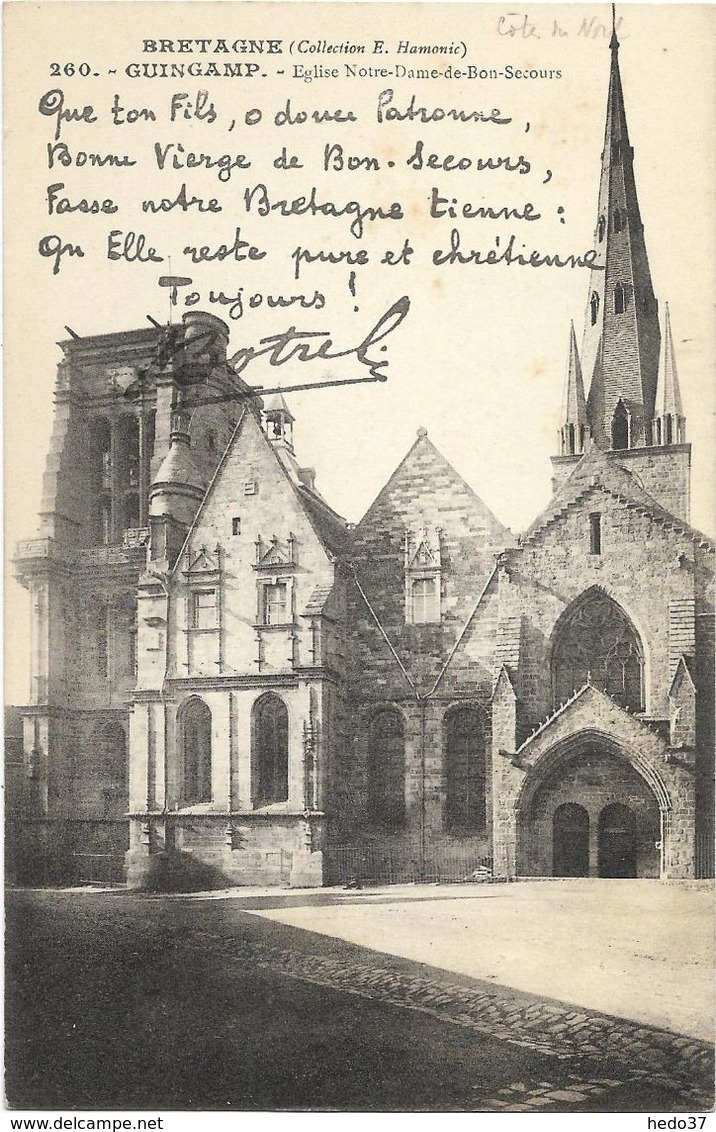 Côte du Nord
BRETAGNE (Collection E. Hamonic)
260. - GUINGAMP. - Eglise Notre-Dame-de-Bon-Secours
Que ton Fils, o douce Patronne,
Bonne Vierge de Bon-Secours,
Fasse notre Bretagne tienne :
Qu'Elle reste pure et chrétienne
Toujours !
Botrel
hedo37